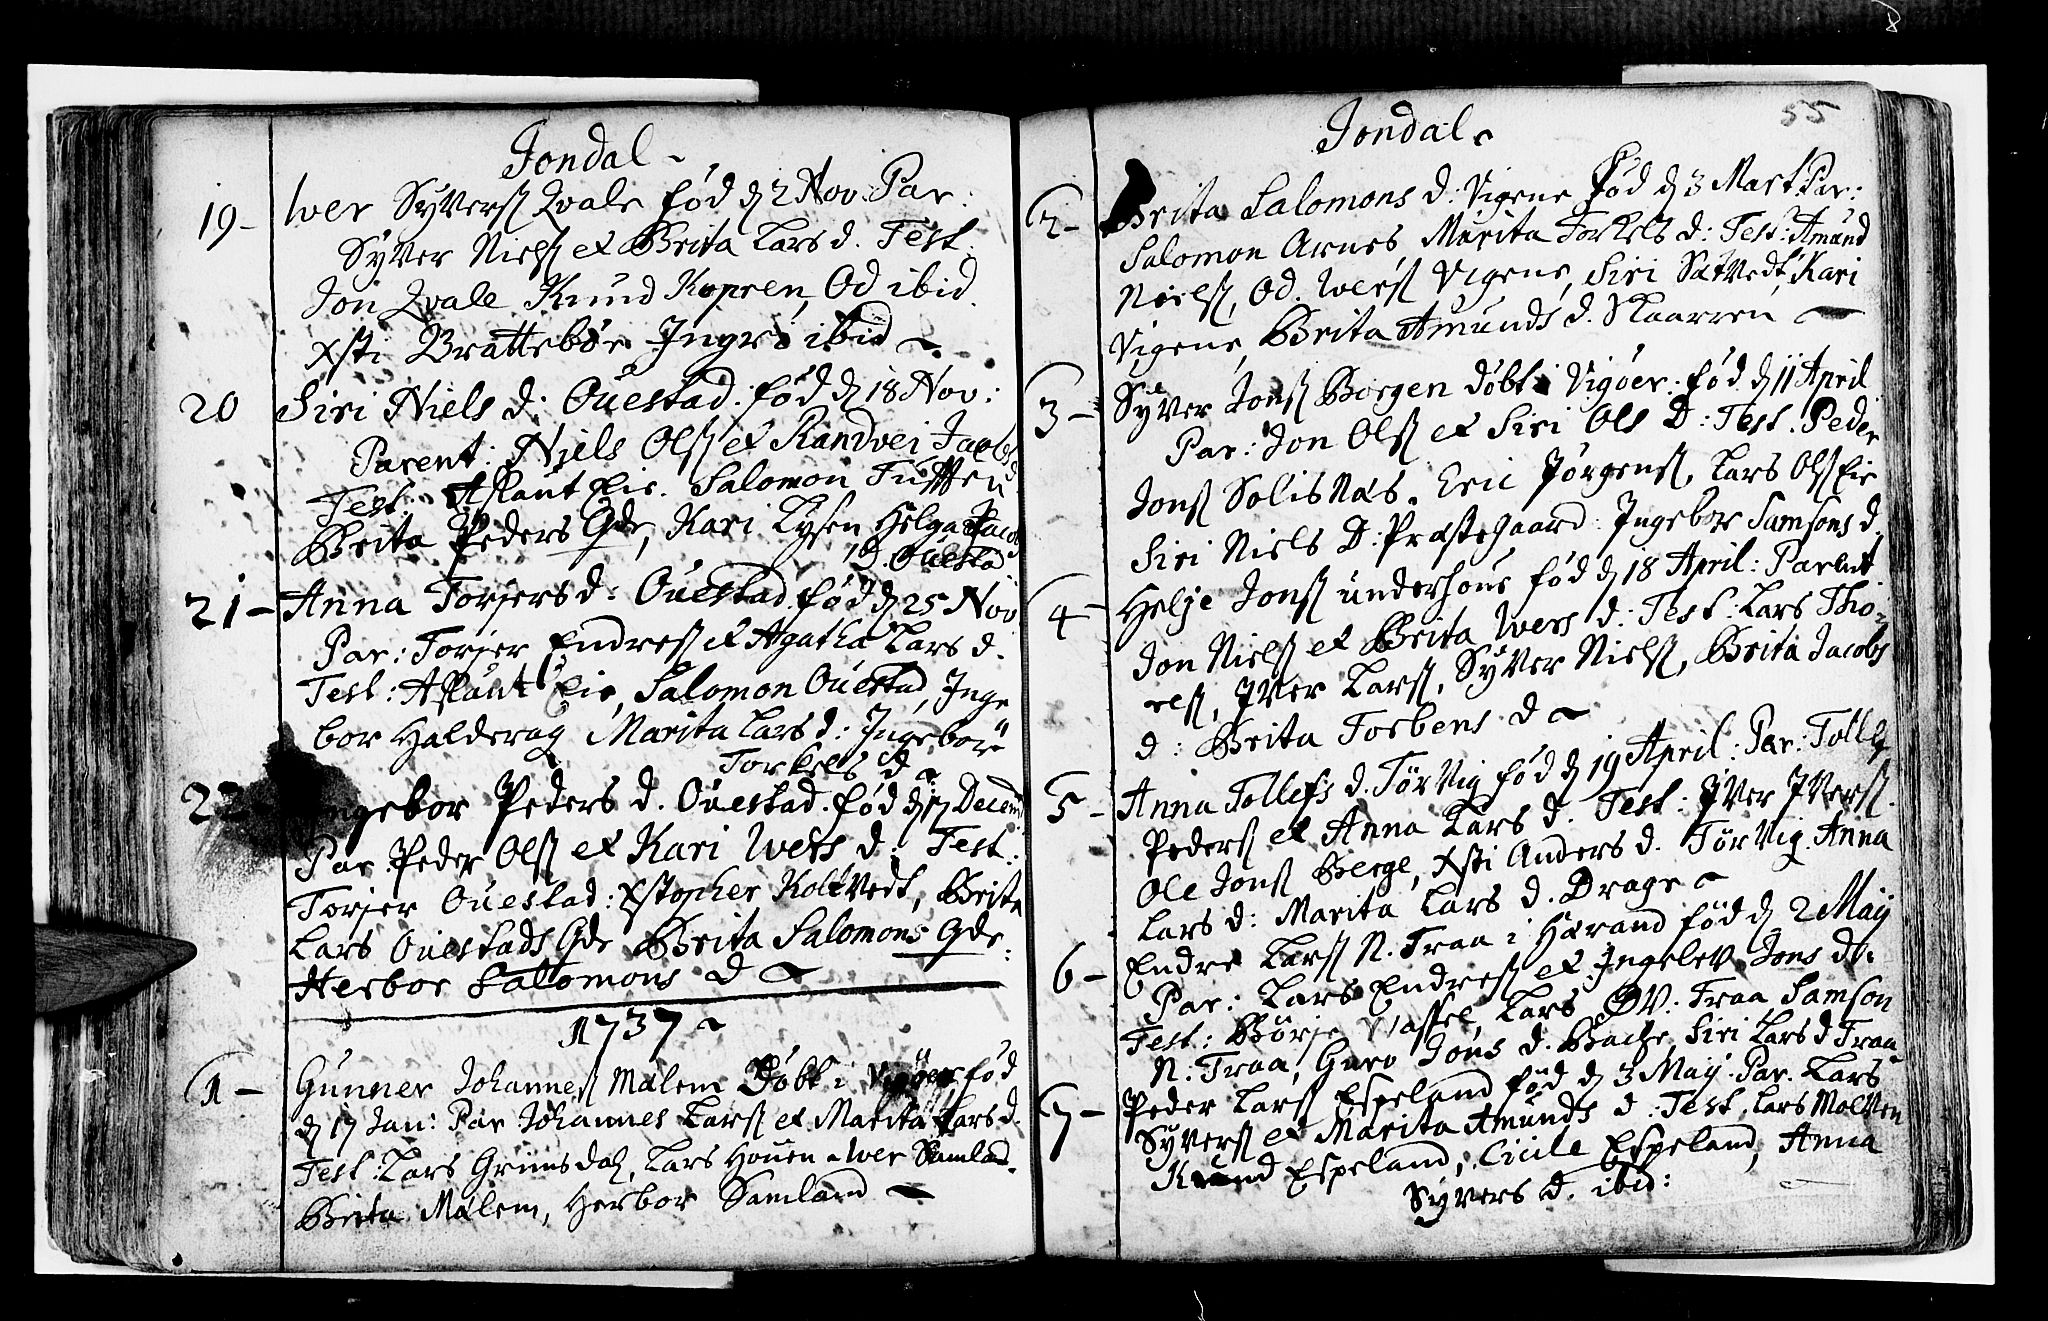 Jondal
19- Iver Syvers. Qvale fød d. 2 Nov. Par:
Syver Niels. et Brita Lars d. Test:
Jon Qvale Knud Kopren, Od ibid.
Xsti Brattebøe Ingri ibid
20 Siri Niels d: Ouestad. fød d. 18 Nov:
Parent: Niels Ols. et Randvei Jacobs d.
Test: Aslaut Eie. Salomon Tufften
Brita Peders Qde, Kari Lysen Helga Jacobs
d. Ouestad
21- Anna Torjersd: Ouestad. fød d. 25 Nov
Par: Torjer Endres. et Agatha Lars d.
Test: Aslaut Eie, Salomon Ouestad, Inge
bor Halderag Marita Lars d: Ingebor
Torkels d
22 Ingebor Peders d. Ouestad. fød d. 17 Decemb
Par. Peder Ols. et Kari Ivers d: Test:
Torjer Ouestad: Xstopher Koltvedt, Brita
Lars Ouestads Qde Brita Salomons Qde.
Herbor Salomons d
1737
1- Gunner Johannes. Mælem Døbt i Vigøer fød
d. 17 Jan: Par Johannes Lars. et Marita Lars d.
Test: Lars Grimsdal, Lars Houen Iver Samland.
Brita Mælem, Herbor Samland
55
Jondal
2- Brita Salomons d: Vigene fød d. 3 Mart. Par:
Salomon Arnes. Marita Torkels d: Test: Amund
Niels. Od. Ivers. Vigene, Siri Sætvedt, Kari
Vigene, Brita Amunds d. Skaarren
3- Syver Jons. Borgen døbt i Vigøer. fød d. 11 April
Par: Jon Ols. et Siri Ols d: Test. Peder
Jons. Solisnæs. Eric Jørgens. Lars Ols. Eie
Siri Niels d: Præstegaard: Ingebor Samsons d.
4- Helje Jons. underhous fød d. 18 April: Parent.
Jon Niels. et Brita Ivers d: Test: Lars Tho-
res. Iver Lars. Syver Niels. Brita Jacobs
d: Brita Torbens d
5- Anna Tollefs d. Tørvig fød d. 19 April: Par: Tollef
Peders. et Anna Lars d. Test: Iver Ivers.
Ole Jons. Berge, Xsti Anders d. Tørvig. Anna
Lars d: Marita Lars d. Drage
6- Endre Lars. N. Traa i Hærand fød d. 2 Maij
Par: Lars Endres. et Ingelev Jons d.
Test: Børje Lars ØV: Traa Samson
N: Traa, Guro Jons d. Bache, Siri Lars d Traa
7- Peder Lars. Espeland fød d. 3 Maij. Par. Lars
Syvers. et Marita Amunds d: Test. Lars Molven
Knud Espeland, Cicile Espeland, Anna
Syvers d. ibid: